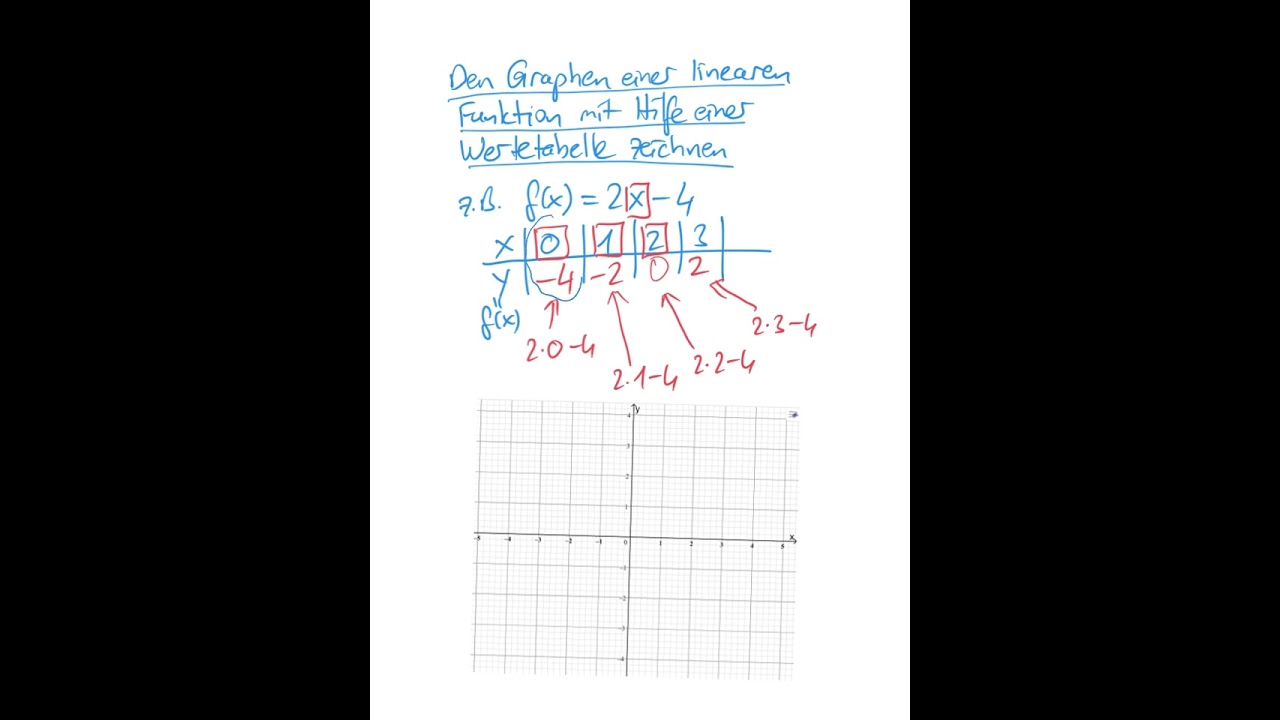 Den Graphen einer linearen
Funktion mit Hilfe einer
Wertetabelle zeichnen
z.B. f(x) = 2x - 4
x | 0 | 1 | 2 | 3 |
y | -4 | -2 | 0 | 2 |
"
f(x)
2·0-4
2·1-4
2·2-4
2·3-4
y
4
3
2
1
-5 -4 -3 -2 -1 0 1 2 3 4 5 x
-1
-2
-3
-4